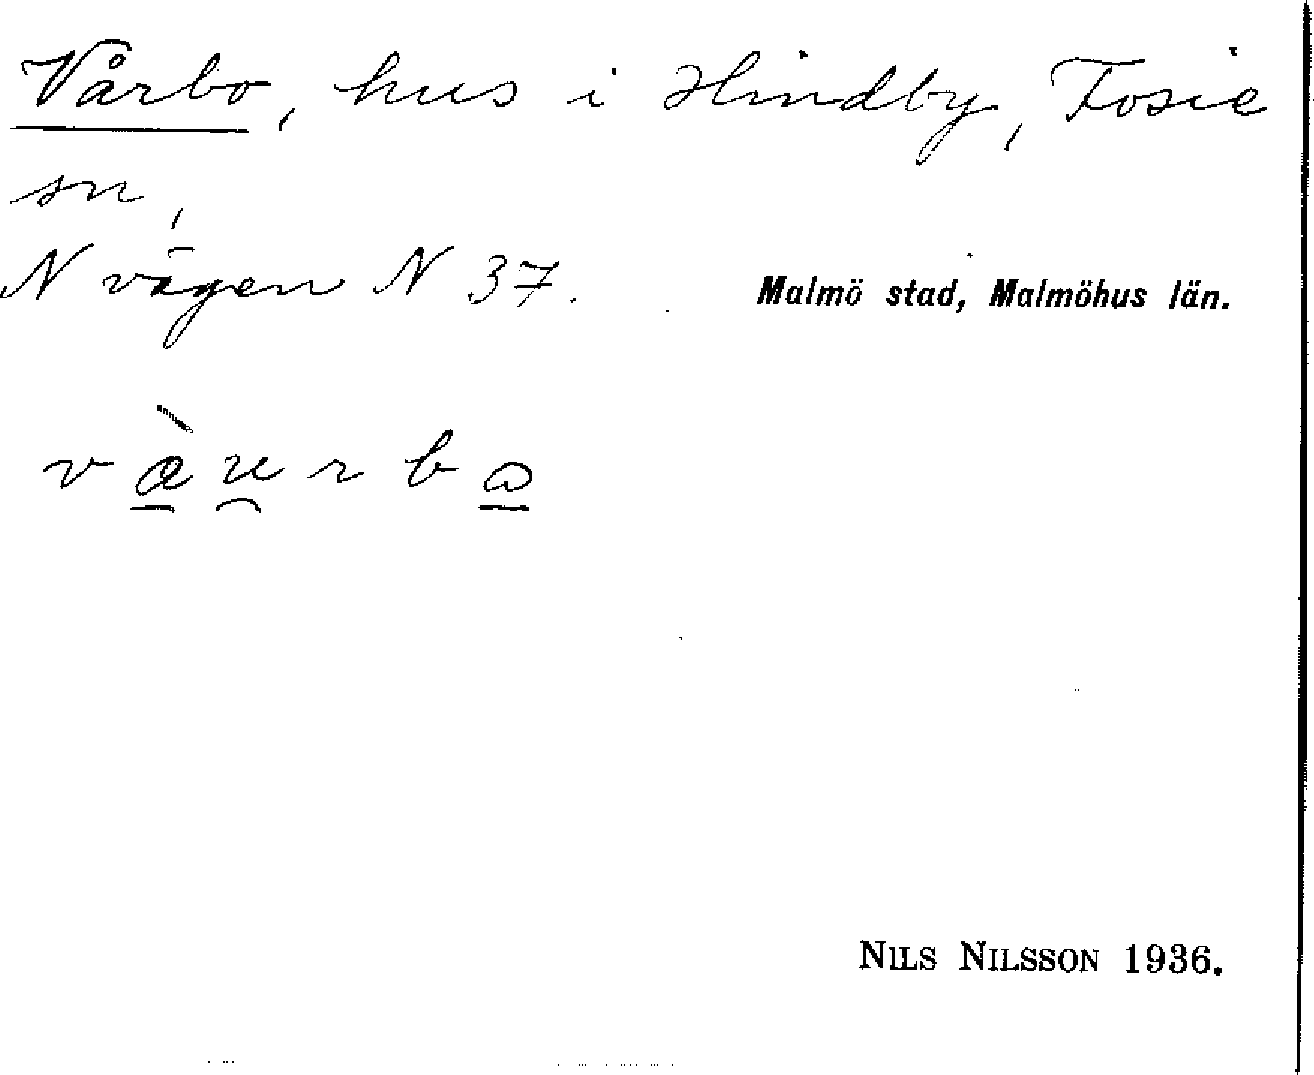 Vårbo, hus i Hindby, Fosie
sn,
N vägen N 37. Malmö stad, Malmöhus län.
væ̀u̯rbo
NILS NILSSON 1936.